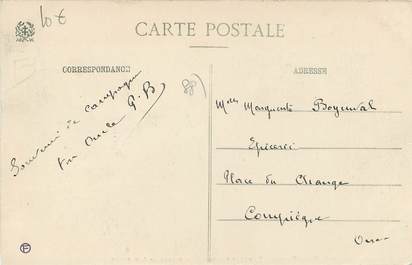 10 €
CARTE POSTALE
CORRESPONDANCE
ADRESSE
88)
Souvenir de campagne
Ton oncle G. B
Melle Marguerite
Epicerie
Place du Change
Compiègne
Oise